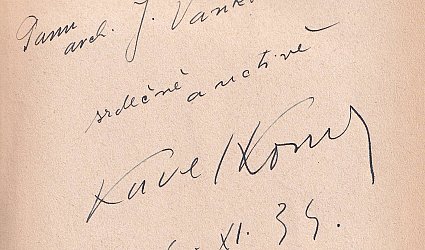 Panu
arch. J. Vaňk
srdečně
a uctivě
Karel Konr
XI. 34.